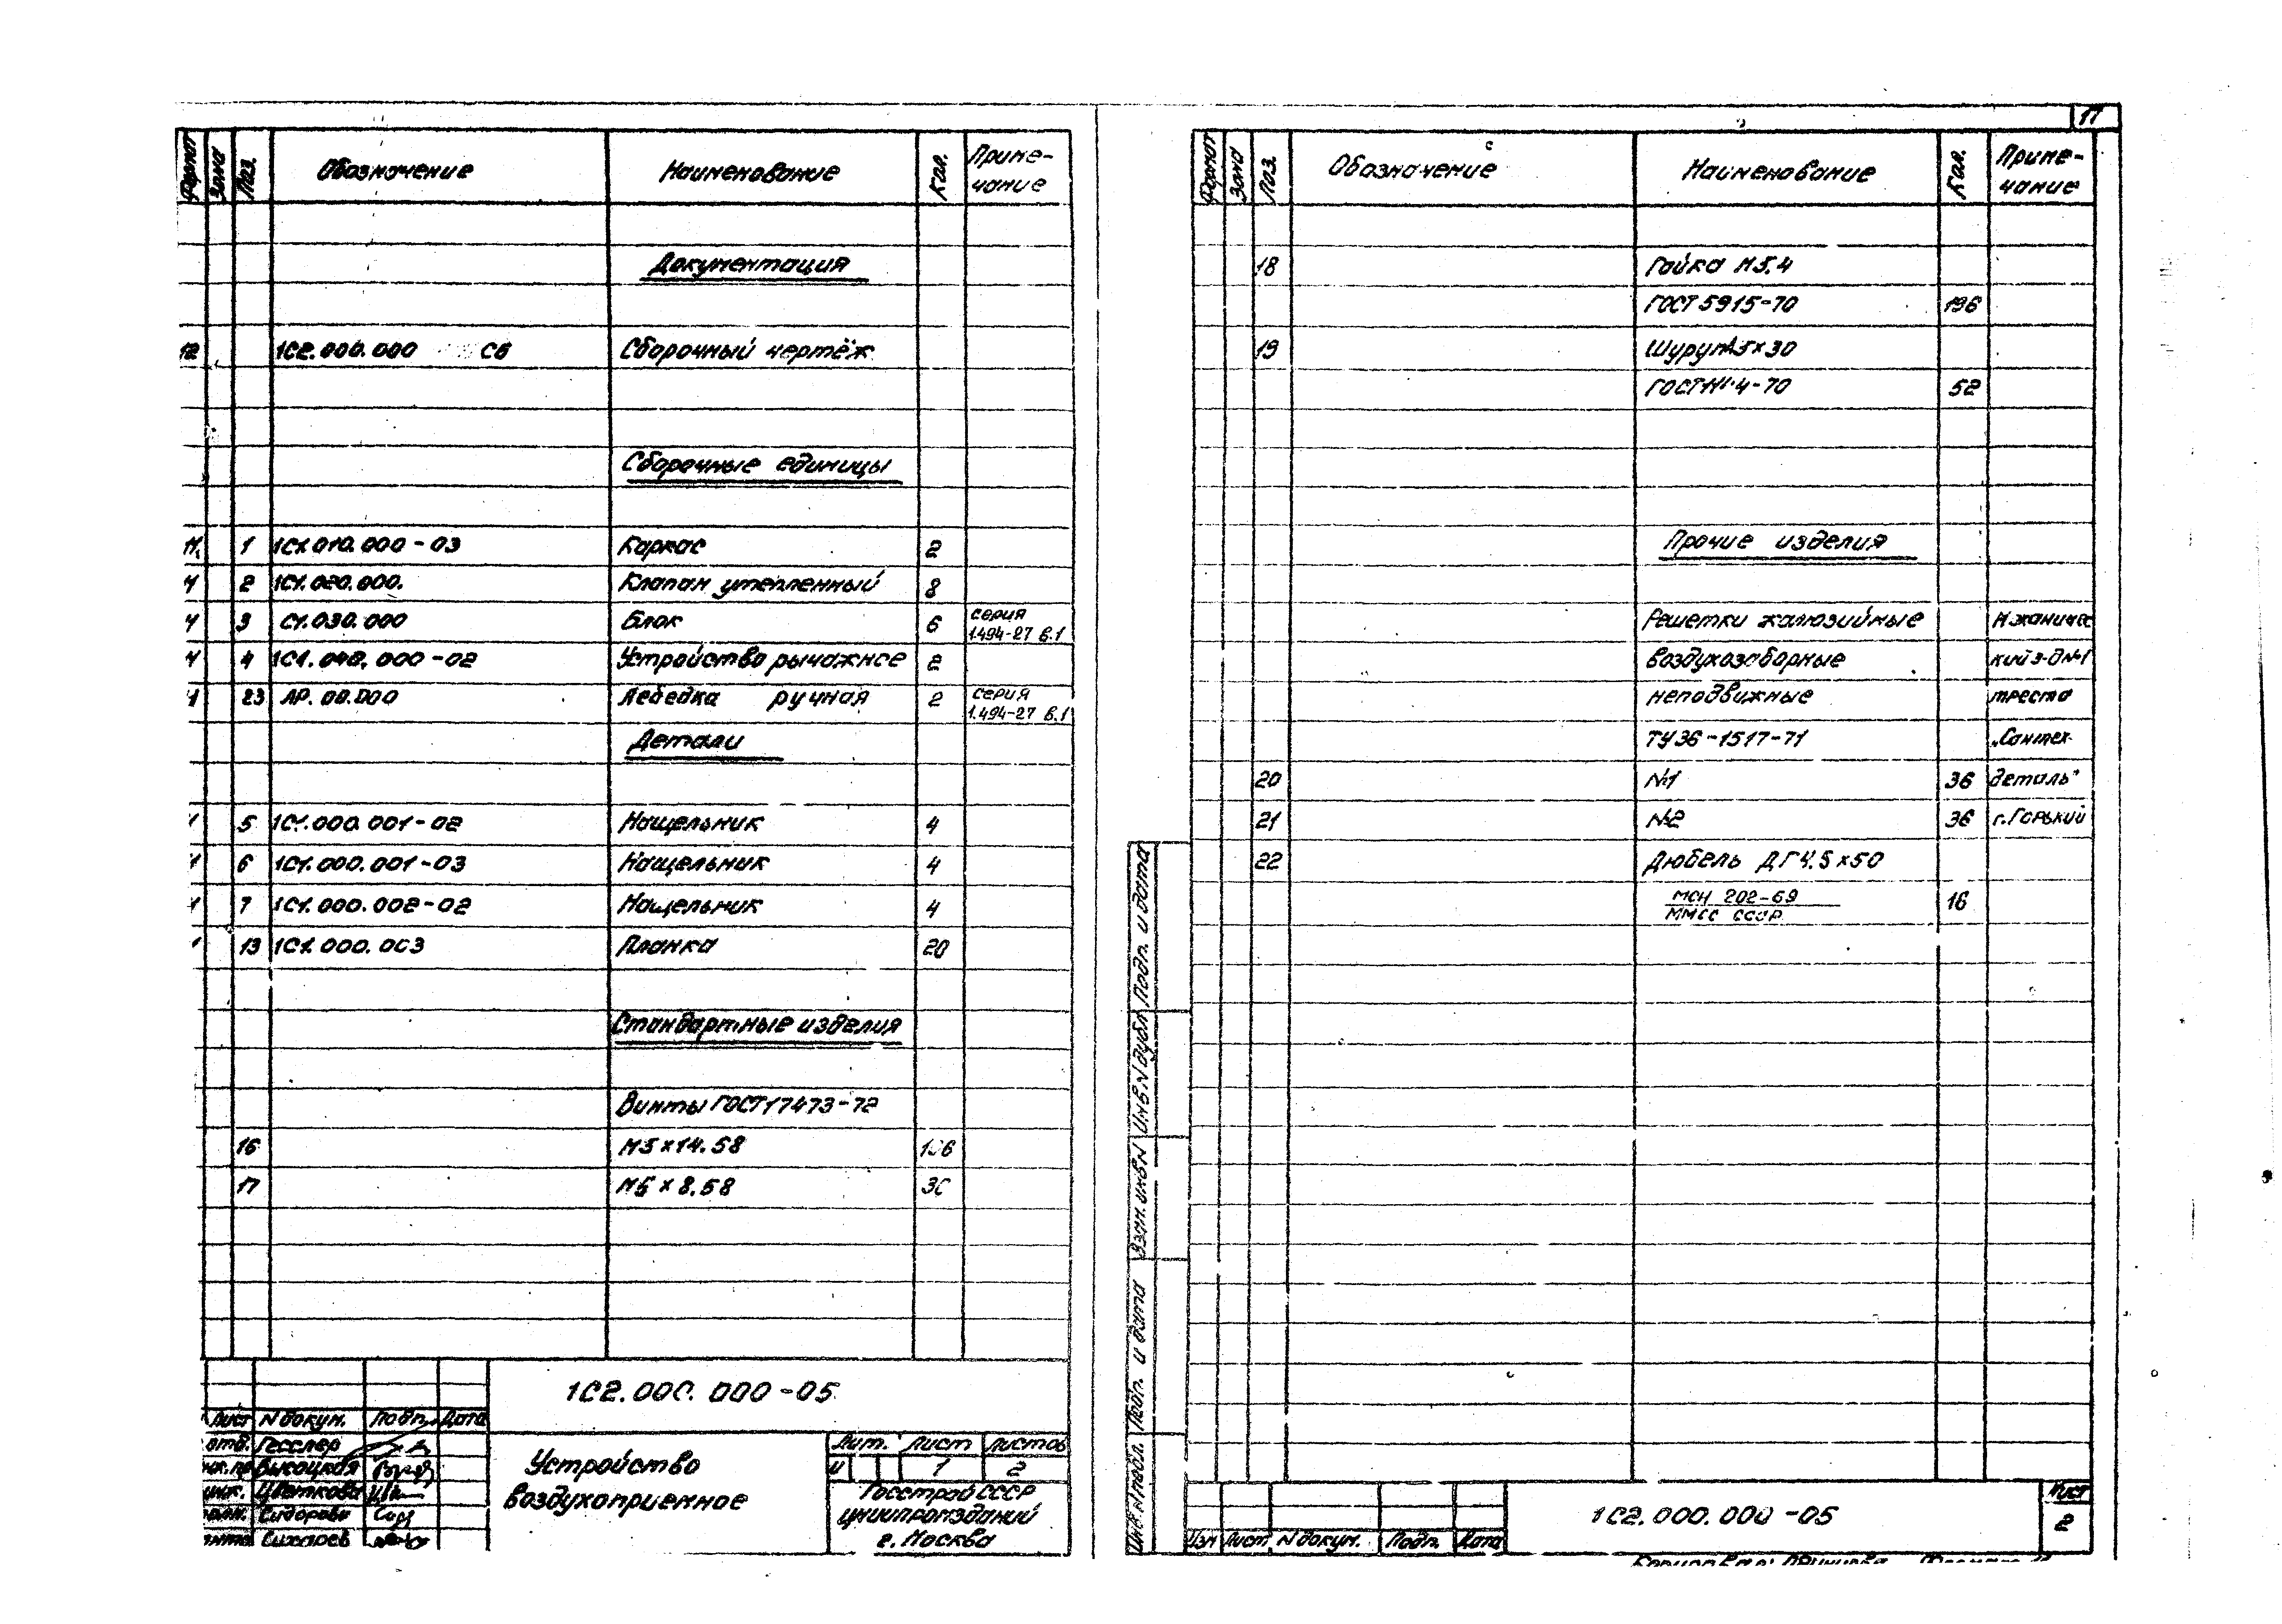 17
Формат Зона Поз. Обозначение Наименование Кол. Приме-
чание
Документация
12 1С2.000.000 СБ Сборочный чертёж
Сборочные единицы
11 1 1С1.010.000-03 Каркас 2
2 1С1.020.000. Клапан утепленный 8
3 С1.030.000 Блок 6 серия
1.494-27 в.1
4 1С1.040.000-02 Устройство рычажное 2
23 ЛР.00.000 Лебедка ручная 2 серия
1.494-27 в.1
Детали
5 1С1.000.001-02 Нащельник 4
6 1С1.000.001-03 Нащельник 4
7 1С1.000.002-02 Нащельник 4
13 1С1.000.003 Планка 20
Стандартные изделия
Винты ГОСТ 17473-72
16 М5×14.58
17 М5×8.58
1С2.000.000-05
Лист N докум. Подп. Дата
Гесслер
Высоцкая
Цветкова
Сидорова
Сихарев
Устройство
воздухоприемное
Лит. Лист Листов
И 1 2
Госстрой СССР
ЦНИИпромзданий
г. Москва
Формат Зона Поз. Обозначение Наименование Кол. Приме-
чание
18 Гайка М5.4
ГОСТ 5915-70 196
19 Шуруп А5×30
52
Прочие изделия
Решетки жалюзийные
воздухозаборные кий з-д №1
неподвижные треста
ТУ36-1517-71 „Сантех-
20 №1 36 деталь"
21 №2 36 г.Горький
22 Дюбель ДГ4.5×50
МСН 202-69 16
ММСС СССР
Инв.N подл. Подп. и дата Взам.инв.N Инв.N дубл. Подп. и дата
Изм Лист N докум. Подп. Дата
1С2.000.000-05
Лист
2